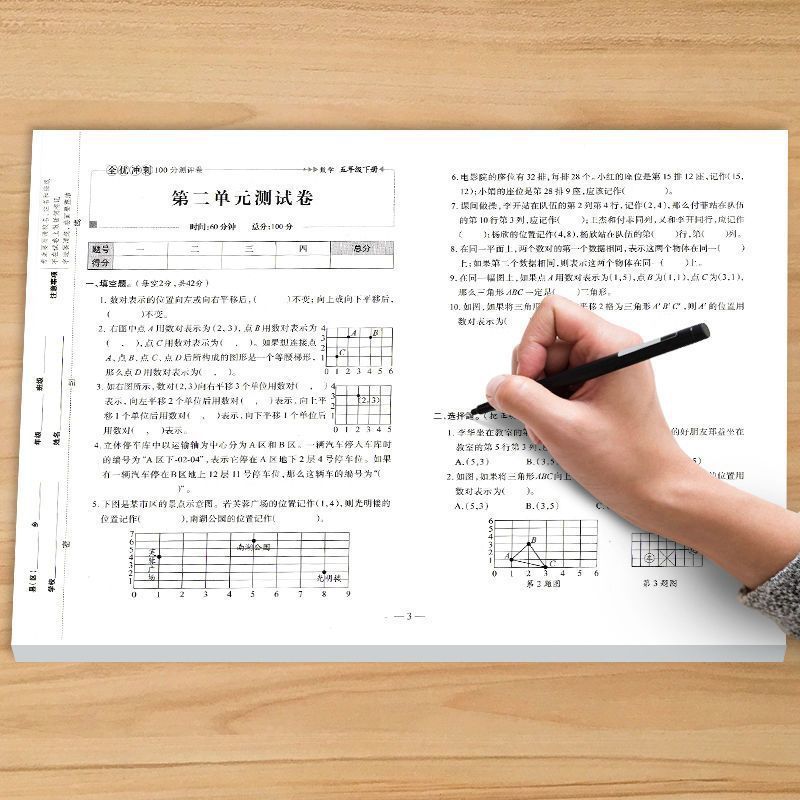 全优冲刺100分测评卷
数学 五年级下册
第二单元测试卷
时间:60分钟 总分:100分
题号 一 二 三 四 总分
得分
一、填空题。(每空2分,共42分)
1. 数对表示的位置向左或向右平移后,( )不变;向上或向下平移后,
( )不变。
2. 右图中点A用数对表示为(2,3),点B用数对表示为
( , ),点C用数对表示为( , )。如果想连接点
A、点B、点C、点D后所构成的图形是一个等腰梯形,
那么点D用数对表示为( , )。
4 3 2 1 0 1 2 3 4 5 6
A B C
3. 如右图所示,数对(2,3)向右平移3个单位用数对( , )
表示,向左平移2个单位后用数对( , )表示,向上平
移1个单位后用数对( , )表示,向下平移1个单位后
用数对( , )表示。
4 3 2 1 0 1 2 3 4 5
(2,3)
4. 立体停车库中以运输轴为中心分为A区和B区。一辆汽车停入车库时
的编号为“A区下-02-04”,表示它停在A区地下2层4号停车位。如果
有一辆汽车停在B区地上12层11号停车位,那么这辆车的编号为“(
)”。
5. 下图是某市区的景点示意图。若芙蓉广场的位置记作(1,4),则光明楼的
位置记作( ),南湖公园的位置记作( )。
7 6 5 4 3 2 1 0 1 2 3 4 5 6 7 8 9
芙蓉广场
南湖公园
光明楼
— 3 —
6. 电影院的座位有32排,每排28个。小红的座位是第15排12座,记作(15,
12);小娟的座位是第28排9座,应该记作( )。
7. 课间做操,李开站在队伍的第2列第4行,记作(2,4),那么付菲站在队伍
的第10行第3列,应记作( );王杰和付菲同列,又和李开同行,应记作
( );杨欣的位置记作(4,8),杨欣站在队伍的第( )行,第( )列。
8. 在同一平面上,两个数对的第一个数据相同,表示这两个物体在同一( )
上;如果第二个数据相同,则表示这两个物体在同一( )上。
9. 在同一幅图上,如果点A用数对表示为(1,5),点B为(1,1),点C为(3,1),
那么三角形ABC一定是( )三角形。
10. 如图,如果将三角形 平移2格为三角形A′B′C′,则A′的位置用
数对表示为(
二、选择题。
1. 李华坐在教室的第 的好朋友郑益坐在
教室的第5行第3列,
A.(5,3) B.(3,5
2. 如图,如果将三角形ABC向上 的位置用
数对表示为( )。
A.(5,3) B.(3,5) C.
6 5 4 3 2 1 0 1 2 3 4 5 6
A B C
第2题图
第3题图
县(区) 乡
学校
年级
班级
姓名
注意事项
密
封
线